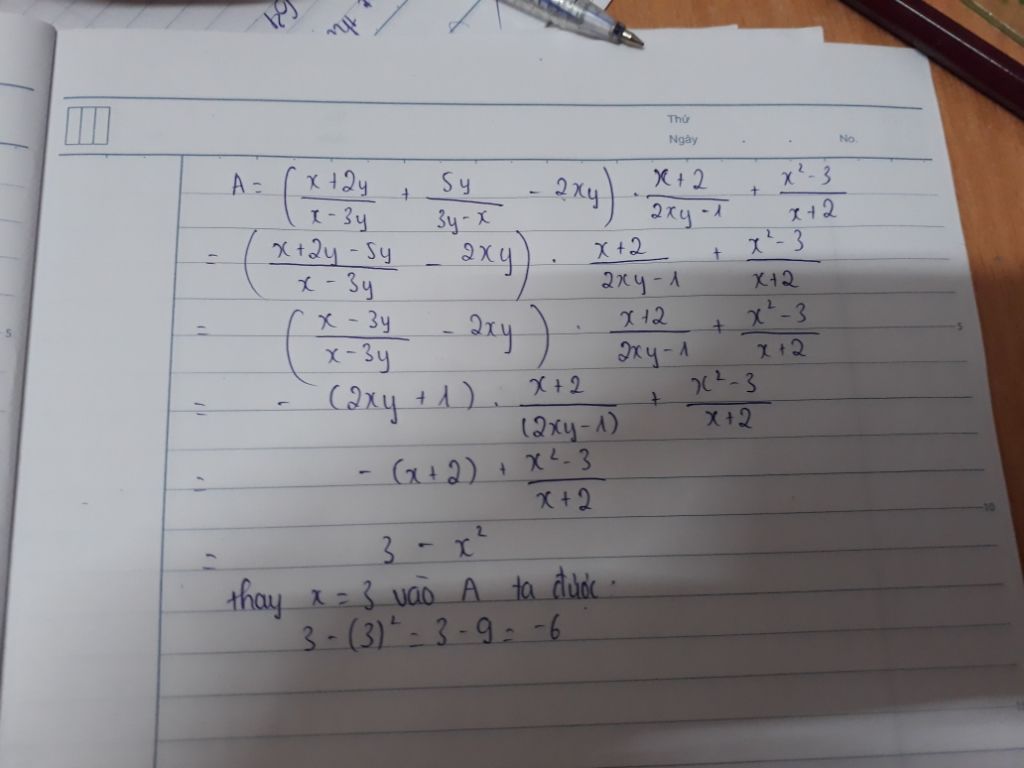 Thứ
Ngày . . No.
A = ( (x + 2y)/(x - 3y) + 5y/(3y - x) - 2xy ) . (x + 2)/(2xy - 1) + (x² - 3)/(x + 2)
= ( (x + 2y - 5y)/(x - 3y) - 2xy ) . (x + 2)/(2xy - 1) + (x² - 3)/(x + 2)
= ( (x - 3y)/(x - 3y) - 2xy ) . (x + 2)/(2xy - 1) + (x² - 3)/(x + 2)
= - (2xy + 1) . (x + 2)/((2xy - 1)) + (x² - 3)/(x + 2)
= - (x + 2) + (x² - 3)/(x + 2)
= 3 - x²
thay x = 3 vào A ta được.
3 - (3)² = 3 - 9 = -6
5
5
10